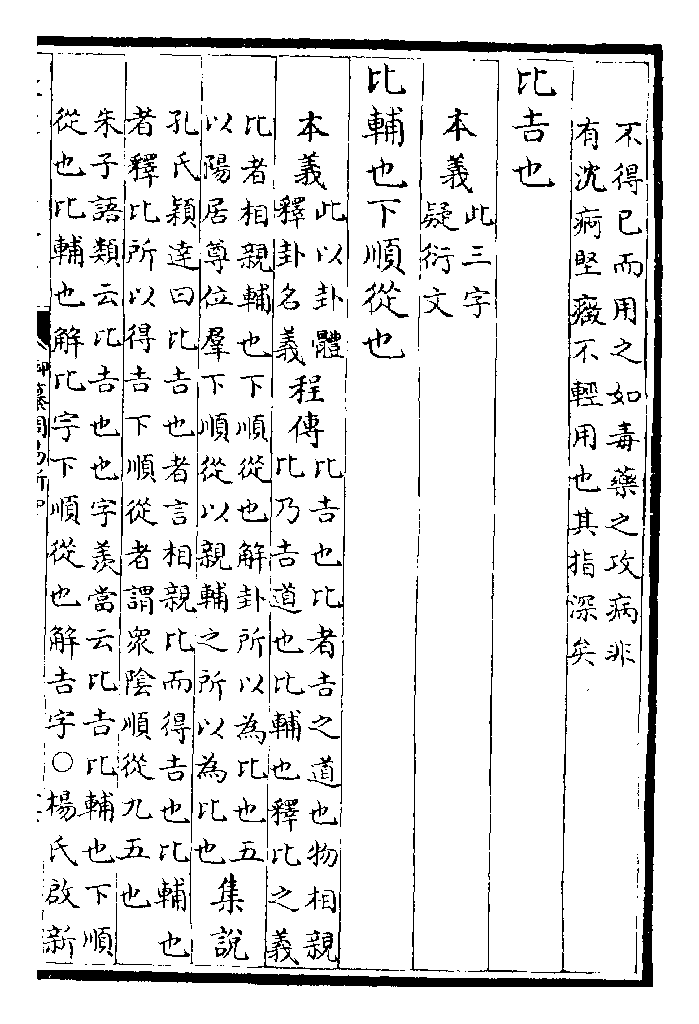 不得已而用之如毒藥之攻病非
有沈痾堅癥不輕用也其指深矣
比吉也
本義
此三字
疑衍文
比輔也下順從也
本義
此以卦體
釋卦名義
程傳
比吉也比者吉之道也物相親
比乃吉道也比輔也釋比之義
比者相親輔也下順從也解卦所以為比也五
以陽居尊位羣下順從以親輔之所以為比也
集說
孔氏穎達曰比吉也者言相親比而得吉也比輔也
者釋比所以得吉下順從者謂衆陰順從九五也
朱子語類云比吉也也字羨當云比吉比輔也下順
從也比輔也解比字下順從也解吉字○楊氏啟新